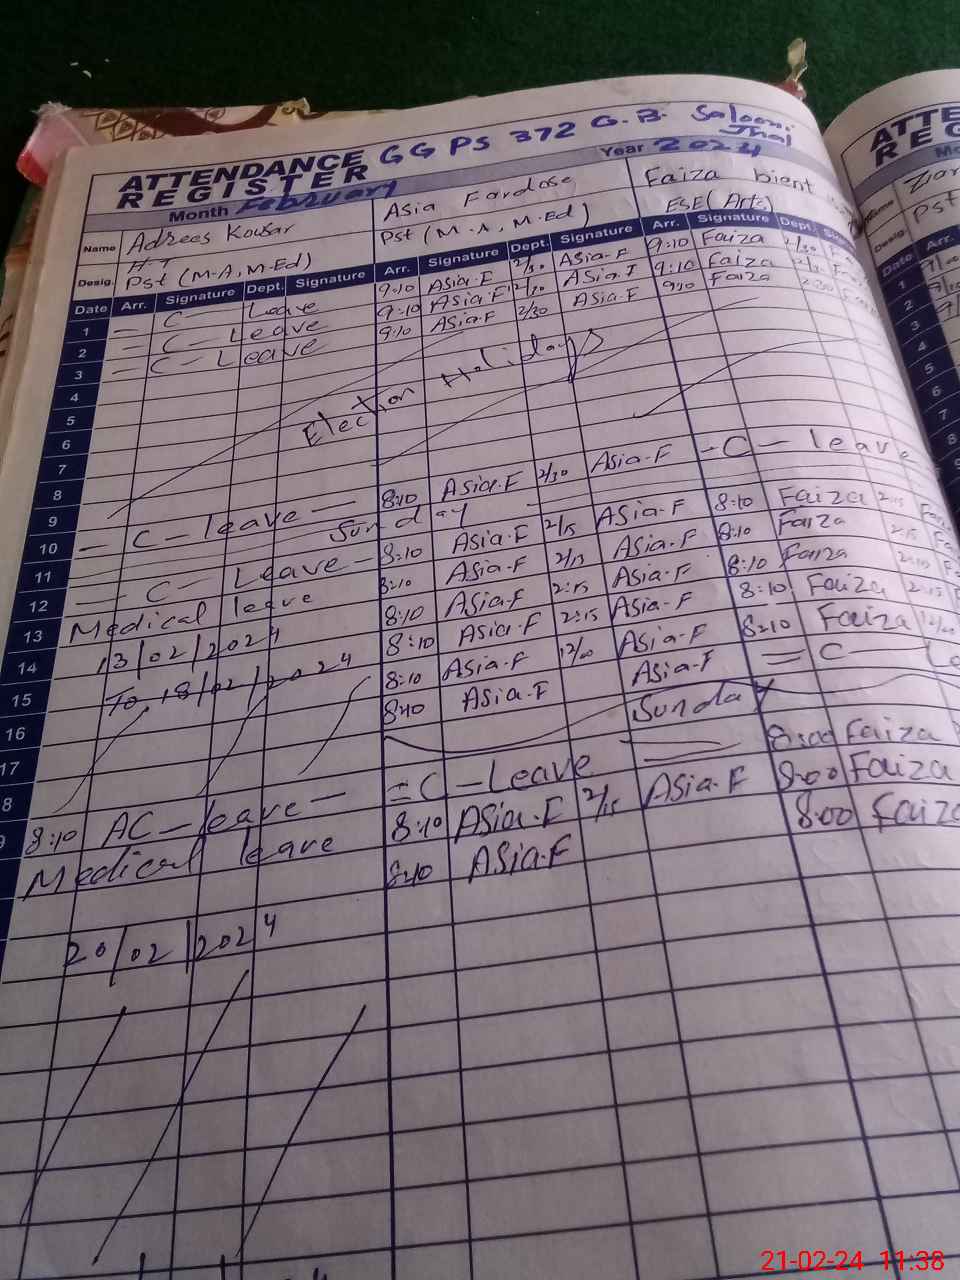 ATTENDANCE GGPS 372 G.B. Salooni
REGISTER Jhal
Month February Year 2024
Name Adrees Kousar Asia Fardose Faiza
H.T
Desig. Pst (M-A, M-Ed) Pst (M-A, M-Ed) ESE (Arts)
Date Arr. Signature Dept. Signature Arr. Signature Dept. Signature Arr. Signature Dept.
1 = C — Leave 9:10 Asia-F 2/30 Asia-F 9:10 Faiza 2/30
2 = C — Leave 9:10 Asia-F 2/30 Asia-F 9:10 Faiza
3 = C — Leave 9:10 Asia-F 2/30 Asia-F 9:10 Faiza
4
5 Election Holidays
6
7
8
9 — C — leave — 8:10 Asia-F 2/30 Asia-F — C — leave
10 Sunday
11 — C — Leave — 8:10 Asia-F 2/15 Asia-F 8:10 Faiza 2:15
12 Medical leave 8:10 Asia-F 2/15 Asia-F 8:10 Faiza 2:15
13 13/02/2024 8:10 Asia-F 2:15 Asia-F 8:10 Faiza
14 To 18/02/2024 8:10 Asia-F 2:15 Asia-F 8:10 Faiza 2:15
15 8:10 Asia-F Asia-F 8:10 Faiza
16 8:10 Asia-F Asia-F = C —
17 Sunday
8 8:10 AC — leave — = C — Leave 8:00 Faiza
9 Medical leave 8:10 Asia-F 2/15 Asia-F 8:00 Faiza
8:10 Asia-F 8:00 Faiza
20/02/2024
ATTE
REG
Name
Desig. Pst
Date Arr.
1
2
3
4
5
6
7
8
21-02-24 11:38